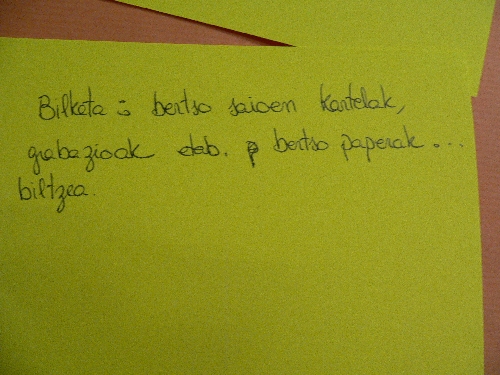 Bilketa: bertso saioen kartelak,
grabazioak bertso paperak...
biltzea.